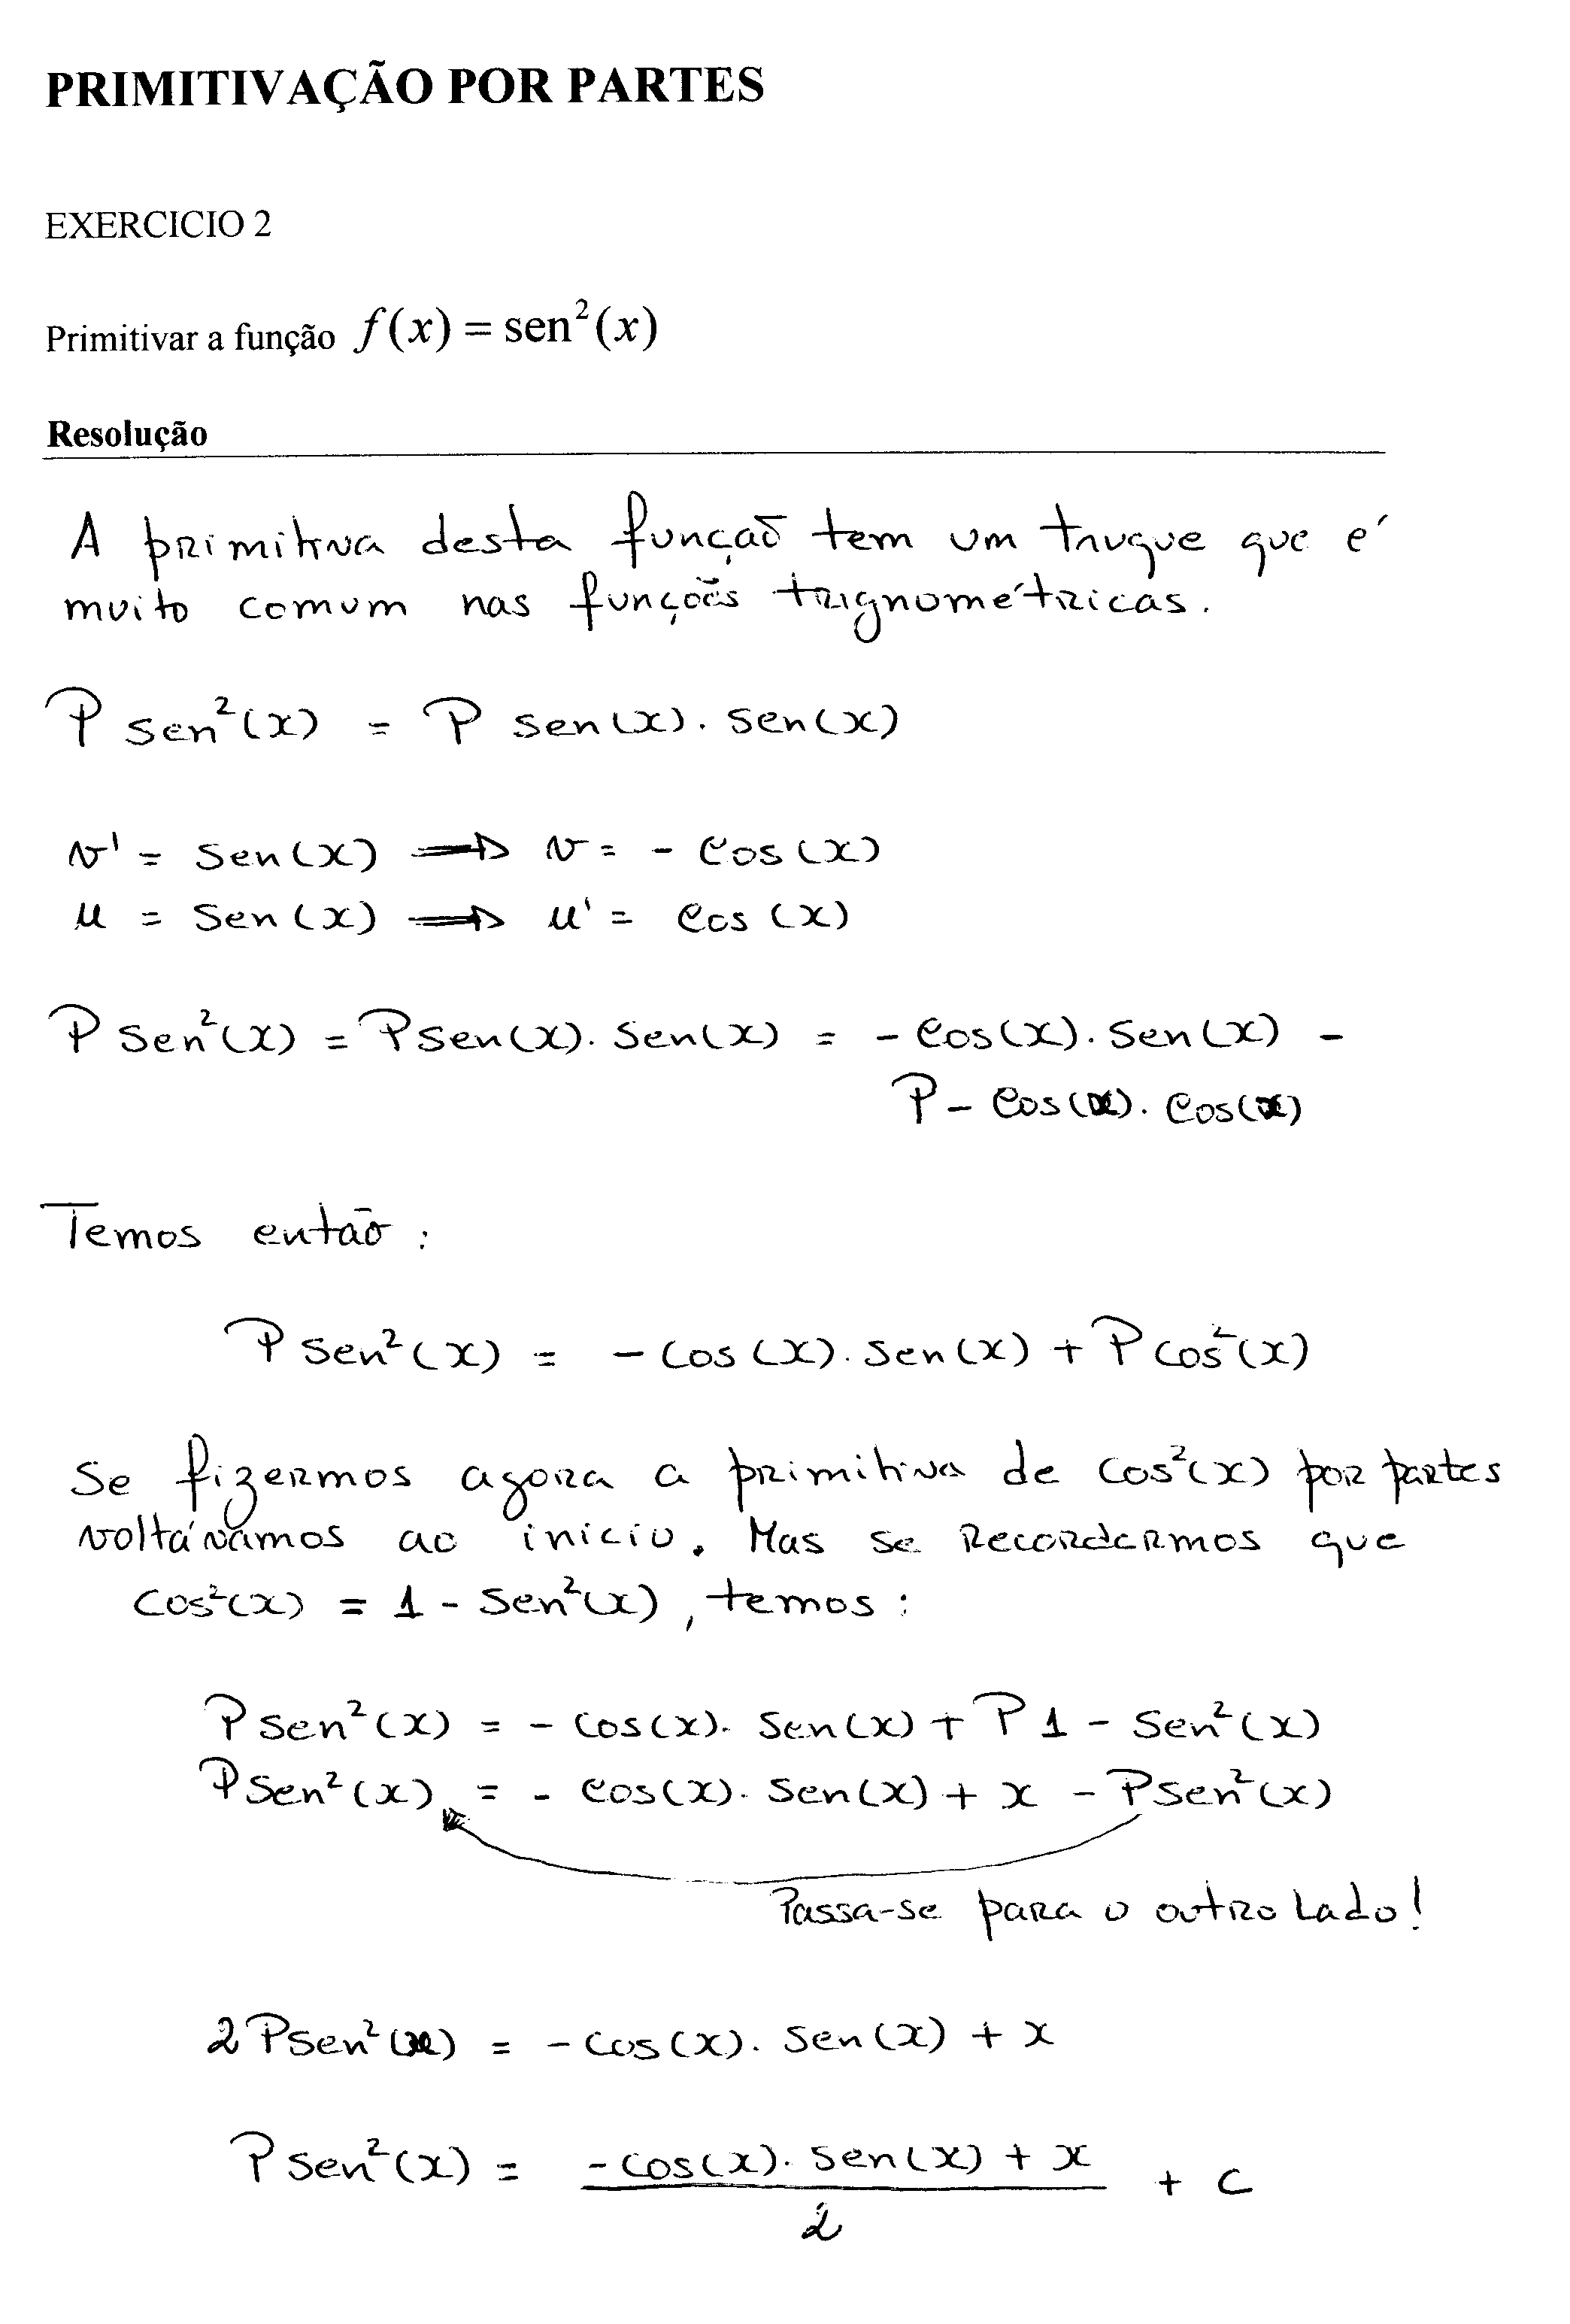 PRIMITIVAÇÃO POR PARTES
EXERCICIO 2
Primitivar a função f(x) = sen²(x)
Resolução
A primitiva desta função tem um truque que é
muito comum nas funções trignométricas.
P sen²(x) = P sen(x). sen(x)
v' = sen(x) ⟹ v = - cos(x)
u = sen(x) ⟹ u' = cos(x)
P sen²(x) = P sen(x). sen(x) = - cos(x). sen(x) -
P - cos(x). cos(x)
Temos então :
P sen²(x) = - cos(x). sen(x) + P cos²(x)
Se fizermos agora a primitiva de cos²(x) por partes
voltávamos ao inicio. Mas se recordarmos que
cos²(x) = 1 - sen²(x), temos :
P sen²(x) = - cos(x). sen(x) + P 1 - sen²(x)
P sen²(x) = - cos(x). sen(x) + x - P sen²(x)
Passa-se para o outro lado!
2 P sen²(x) = - cos(x). sen(x) + x
P sen²(x) = - cos(x). sen(x) + x / 2 + c